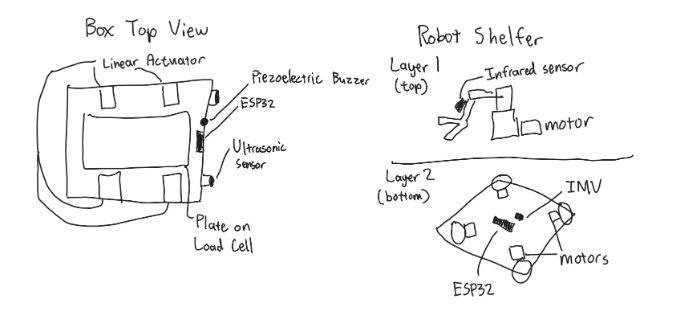 Box Top View
Linear Actuator
Piezoelectric Buzzer
ESP32
Ultrasonic
Sensor
Plate on
Load Cell
Robot Shelfer
Layer 1
(top)
Infrared sensor
motor
Layer 2
(bottom)
IMV
motors
ESP32